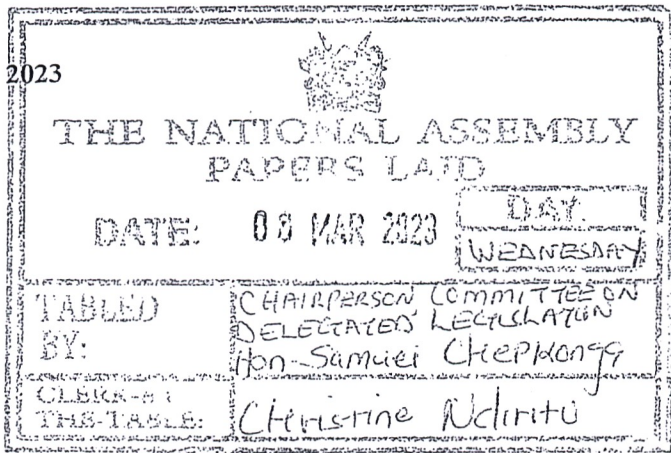 2023
THE NATIONAL ASSEMBLY
PAPERS LAID
DATE: 08 MAR 2023
DAY.
WEDNESDAY
TABLED
BY:
CHAIRPERSON COMMITTEE ON
DELEGATED LEGISLATION
Hon-Samuel Chepkonga
CLERK-AT
THE-TABLE:
Christine Ndiritu